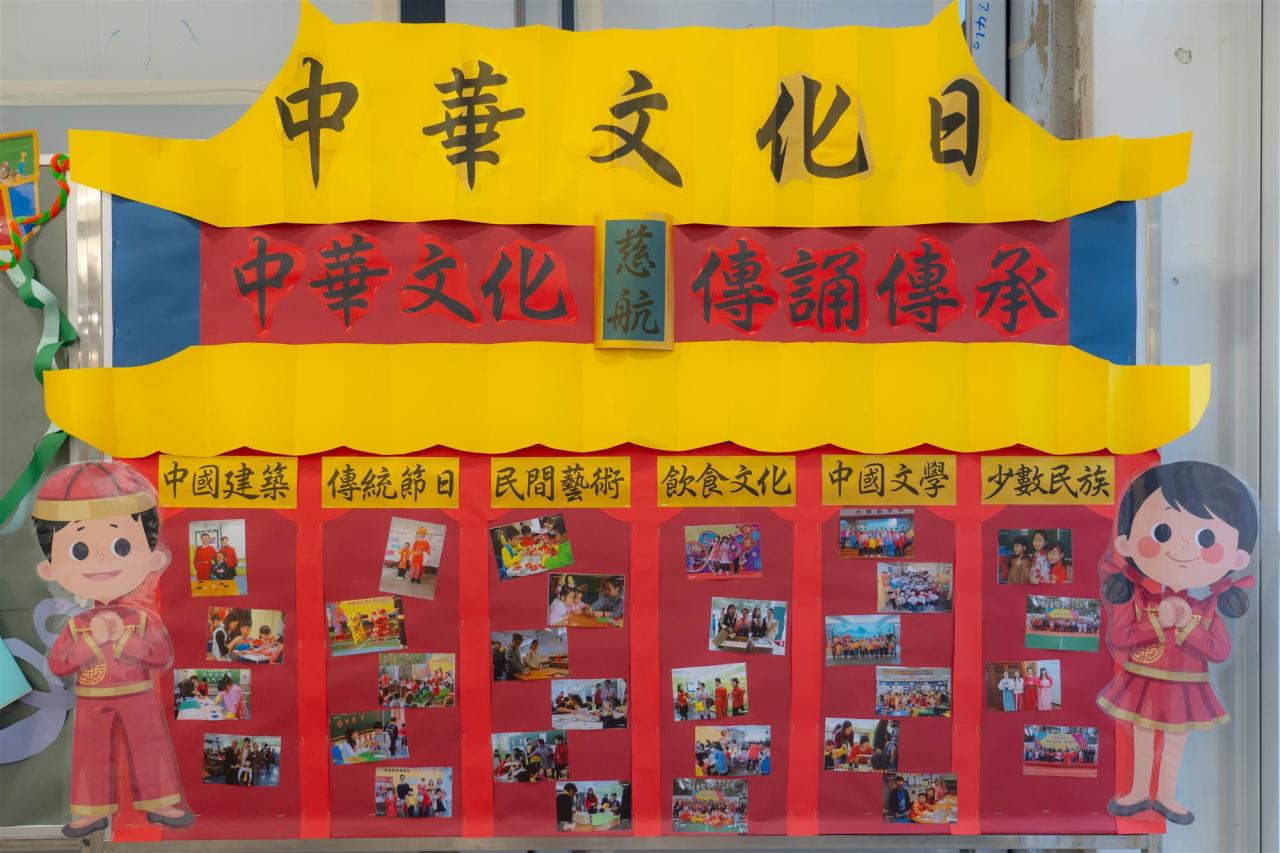 中華文化日
中華文化
慈航
傳誦傳承
中國建築
傳統節日
民間藝術
飲食文化
中國文學
少數民族